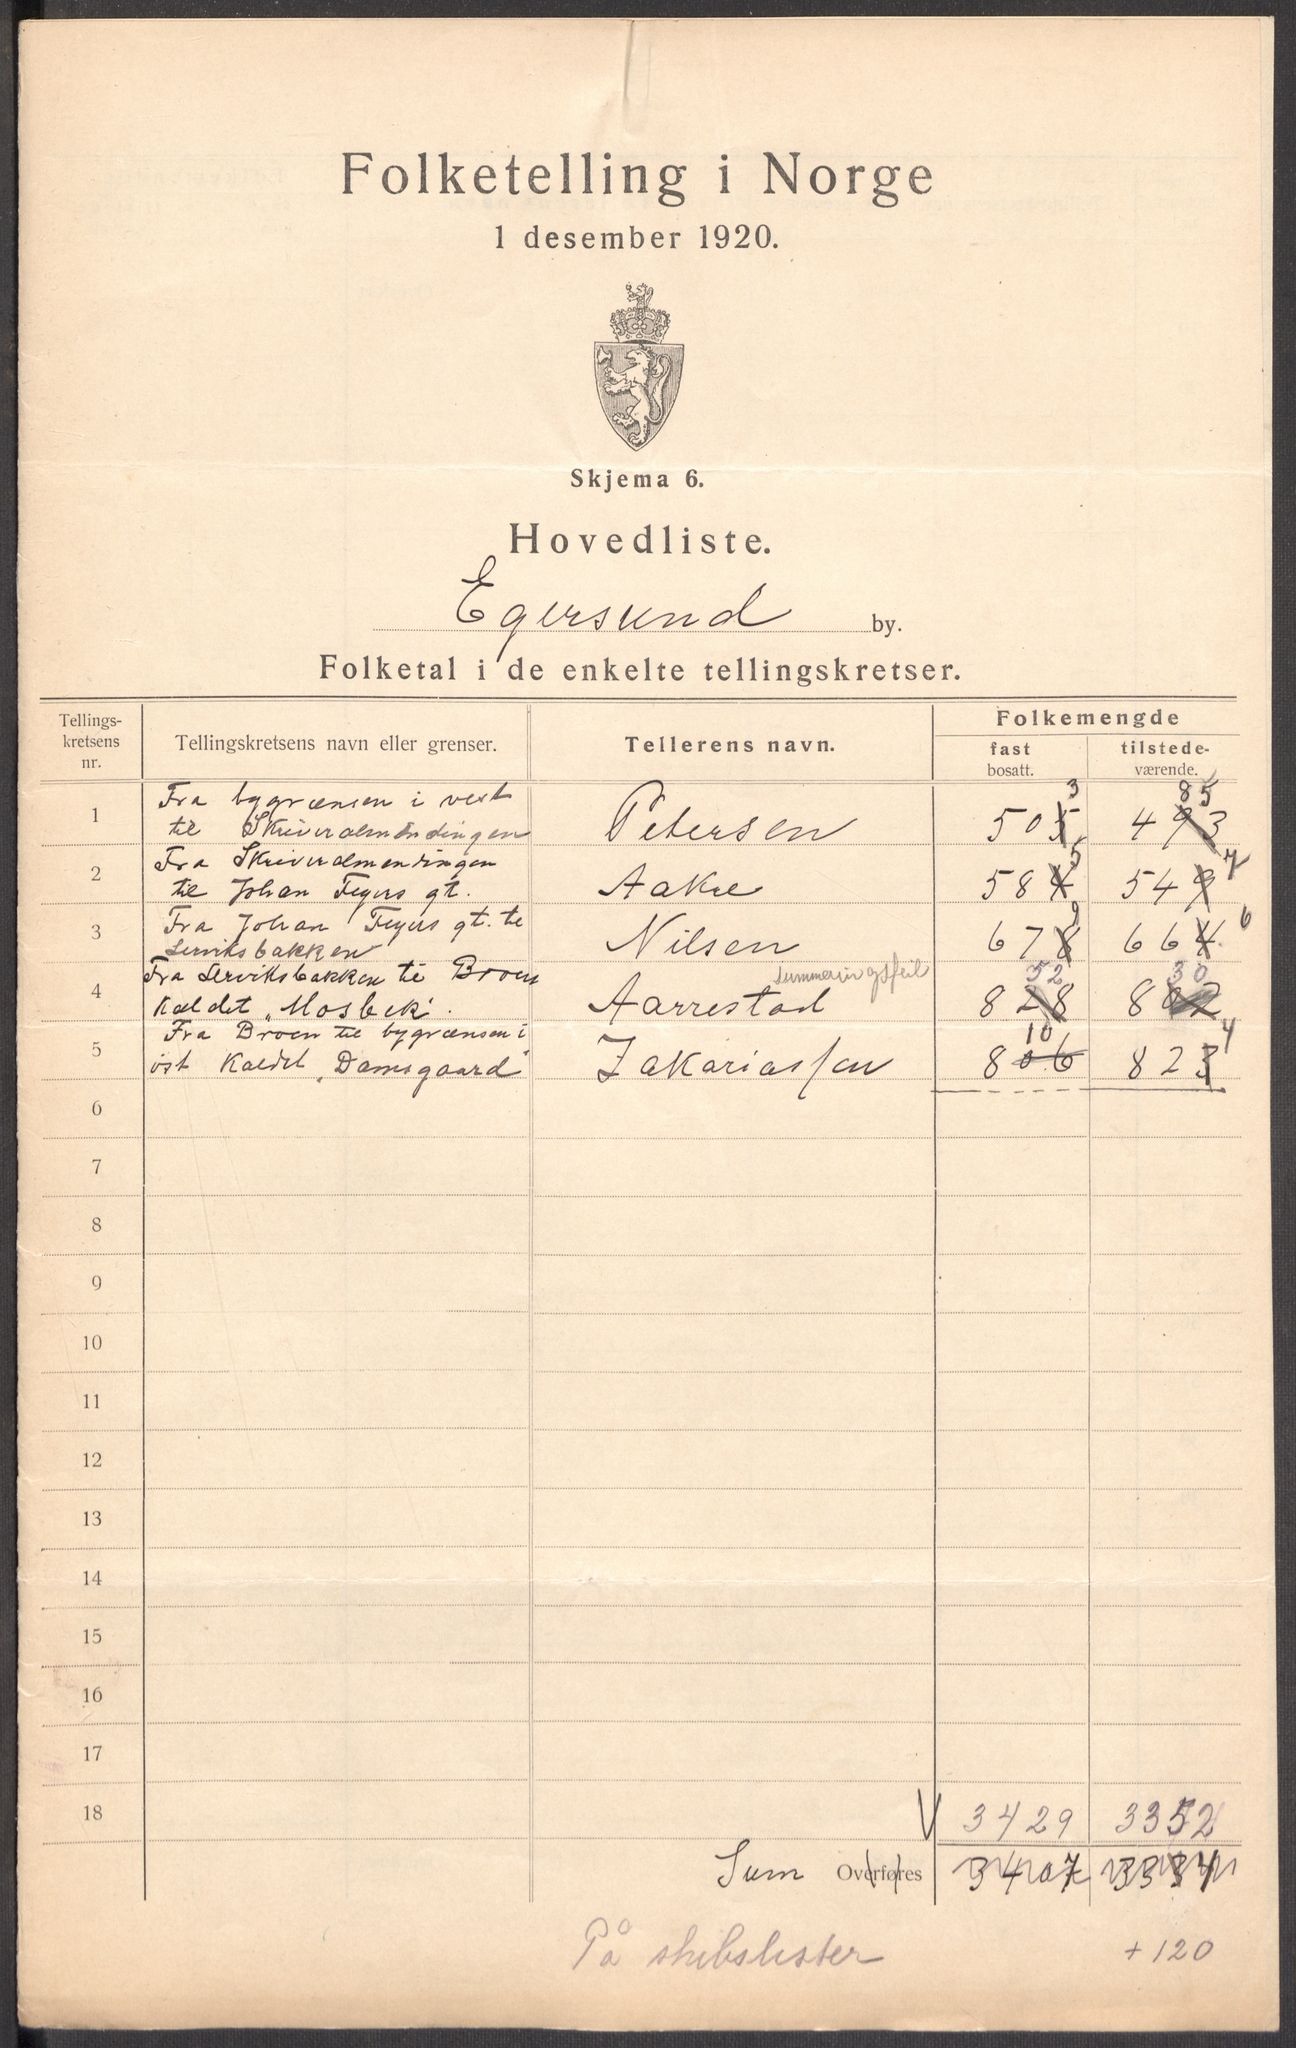 Folketelling i Norge
1 desember 1920.
Skjema 6.
Hovedliste.
Egersund by.
Folketal i de enkelte tellingskretser.
Tellings-
kretsens
nr.
Tellingskretsens navn eller grenser.
Tellerens navn.
Folkemengde
fast
bosatt.
tilstede-
værende.
1
Fra bygrænsen i vest
til Skriveralmendingen
Petersen
505 3
493 85
2
Fra Skriveralmenningen
til Johan Feyers gt.
Aakre
584 5
549 7
3
Fra Johan Feyers gt. te
Lerviksbakken
Nilsen
678 9
664 6
4
Fra Lerviksbakken te Broen
kaldet „Mosbek“.
summeringsfeil
Aarrestad
828 52
802 30
5
Fra Broen til bygrænsen i
øst kaldet „Damsgaard“
Zakariassen
806 10
823 4
6
7
8
9
10
11
12
13
14
15
16
17
18
3429
3352
Sum Overføres
3407
3334
På skibslister
+120